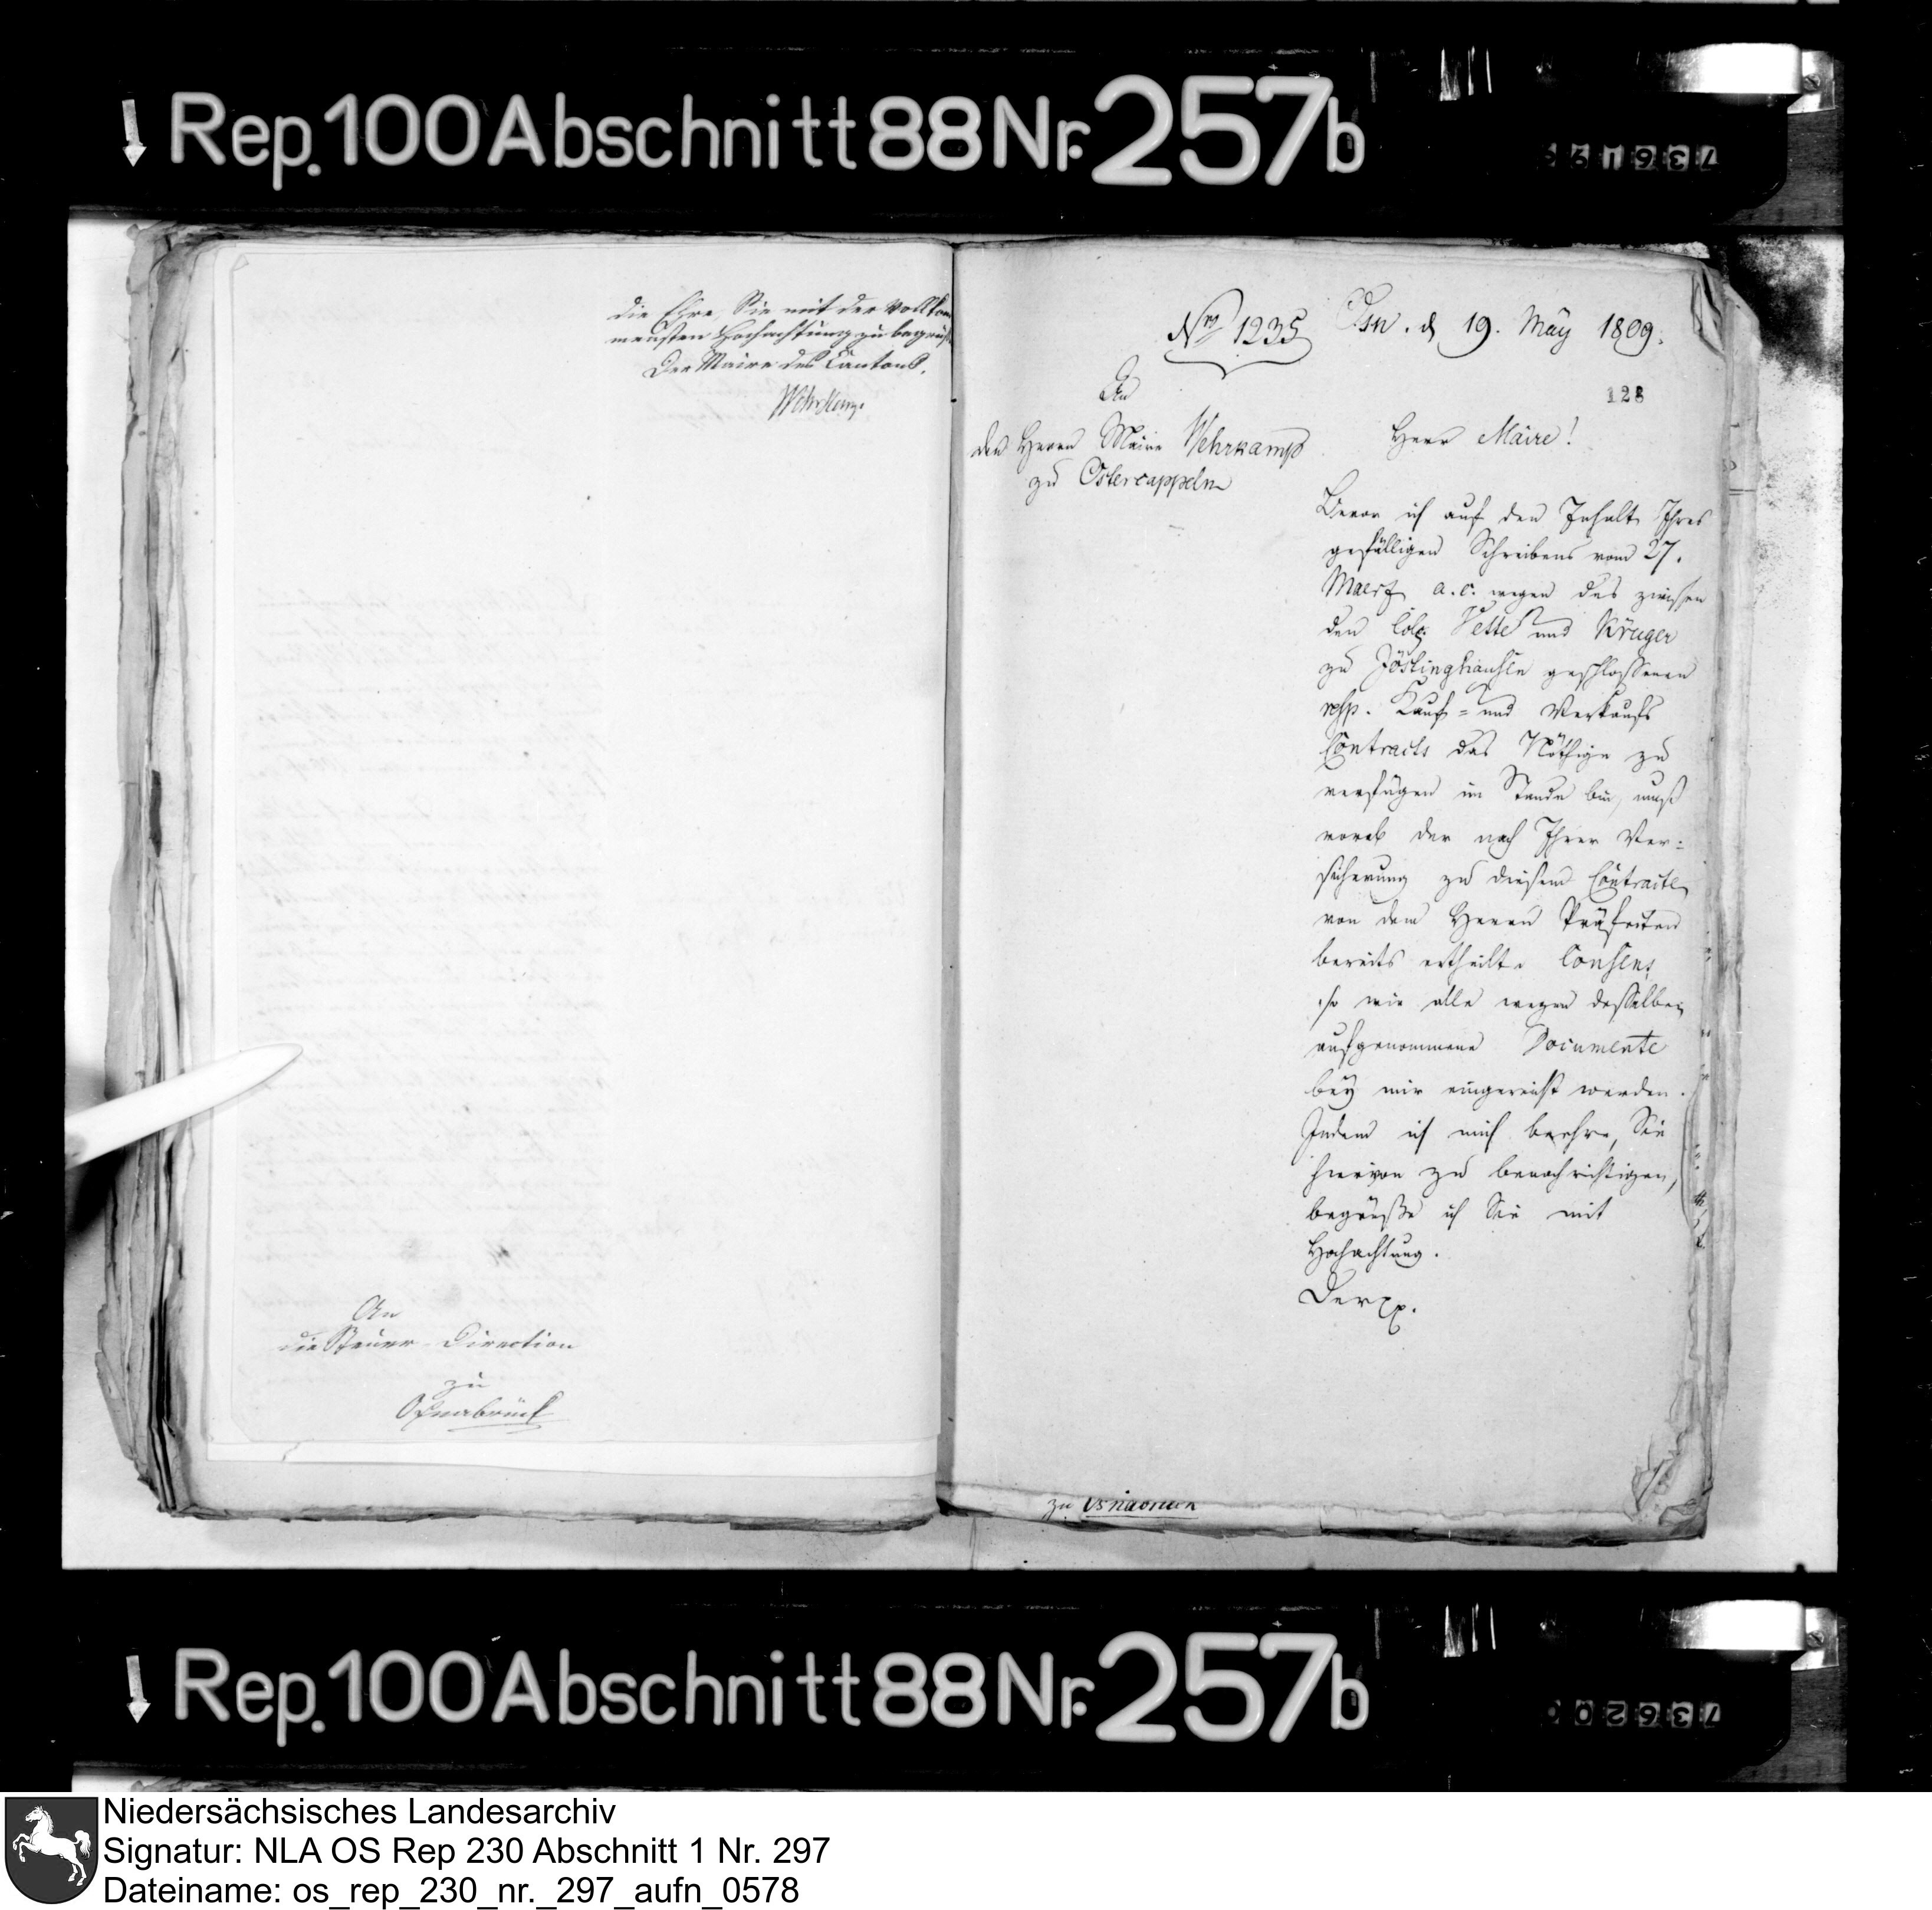 Rep. 100 Abschnitt 88 Nr. 257b
736199
die Ehre, Sie mit der vollkom
mensten Hochachtung zu begrüß
Der Maire des Cantons.
Wehrkamp
An
die Steuer-Direction
zu
Osnabrück
Nro 1235
Osn. d 19. May 1809.
128
An
den Herrn Maire Wehrkamp
zu Ostercappeln
Herr Maire!
Bevor ich auf den Inhalt Ihres
gefälligen Schreibens vom 27.
Maerz a. c. wegen des zwischen
den Col. Vette und Krüger
zu Jöstinghausen geschlossenen
resp. Kauf= und Verkaufs
Contracts das Nöthige zu
verfügen im Stande bin, muß
vorab der nach Ihrer Ver=
sicherung zu diesem Contracte
von dem Herrn Präfecten
bereits ertheilte Consens,
so wie alle wegen desselben
aufgenommene Documente
bey mir eingereicht werden.
Indem ich mich beehre, Sie
hiervon zu benachrichtigen,
begrüße ich Sie mit
Hochachtung.
Der pp.
zu Osnabrück
Rep. 100 Abschnitt 88 Nr. 257b
736200
Niedersächsisches Landesarchiv
Signatur: NLA OS Rep 230 Abschnitt 1 Nr. 297
Dateiname: os_rep_230_nr._297_aufn_0578